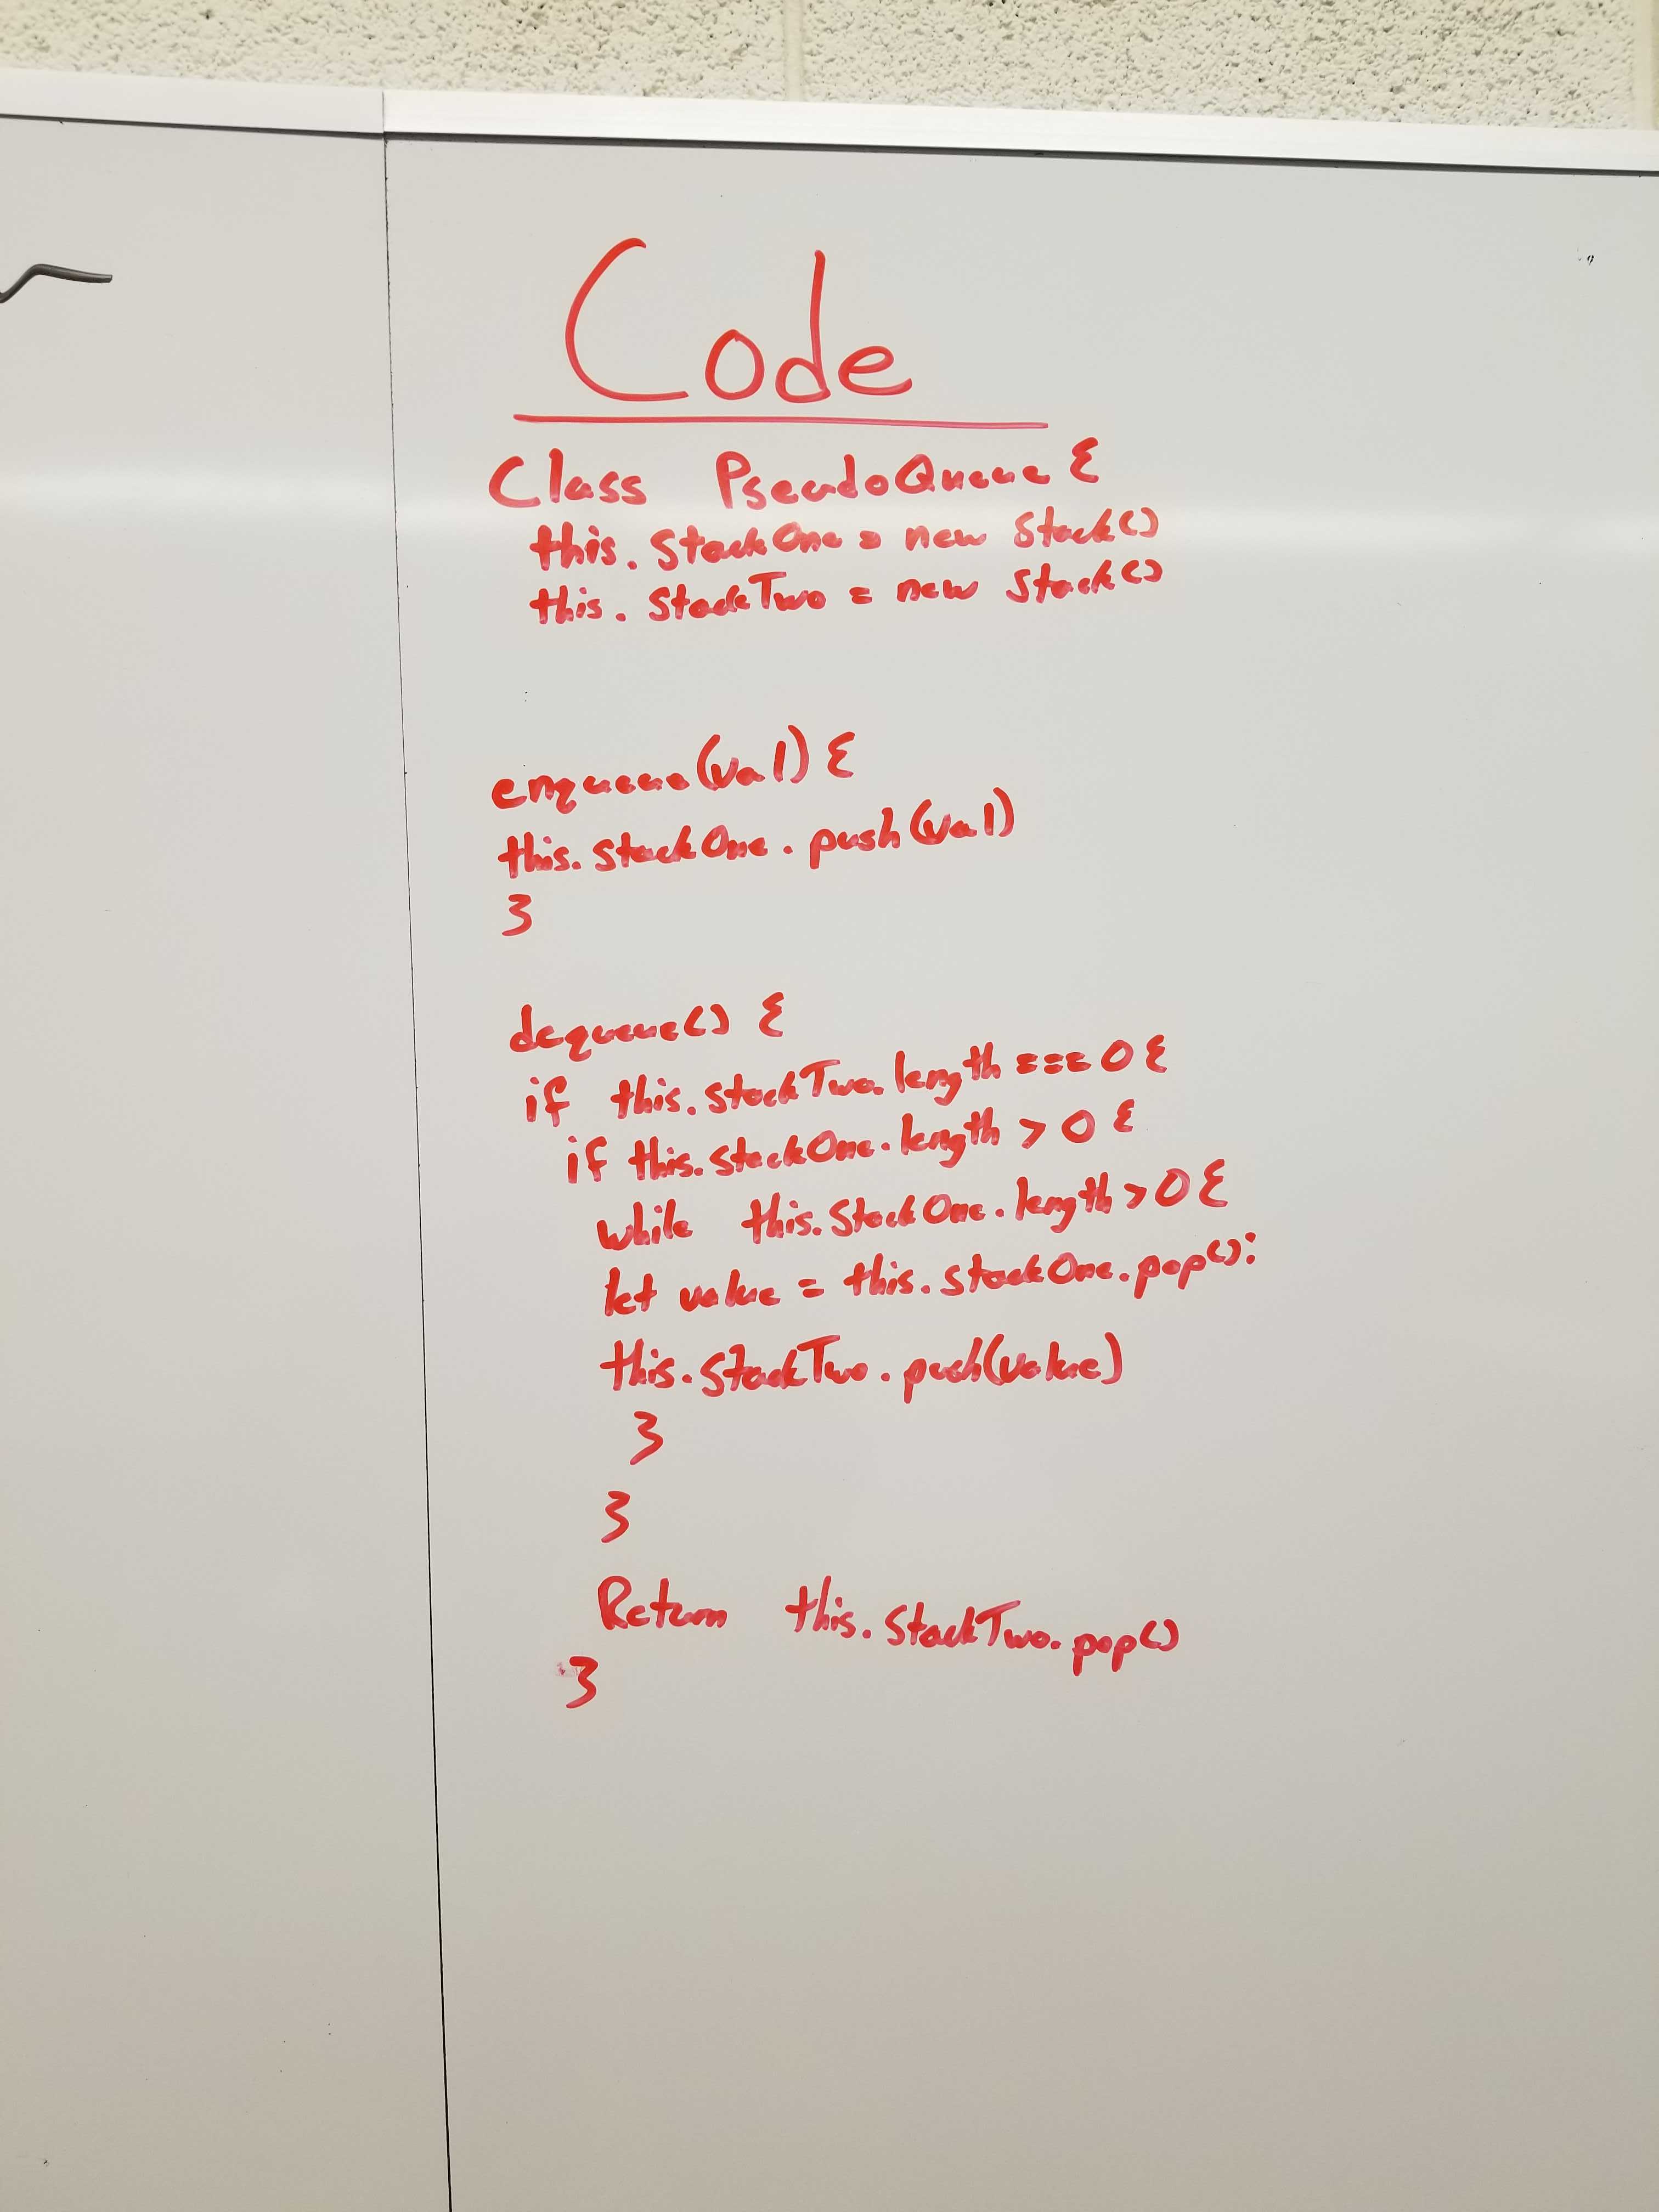 Code
Class PseudoQueue {
this.StackOne = new Stack()
this.StackTwo = new Stack()
enqueue(val) {
this.stackOne.push(val)
}
dequeue() {
if this.stackTwo.length === 0 {
if this.stackOne.length > 0 {
while this.StackOne.length > 0 {
let value = this.stackOne.pop():
this.stackTwo.push(value)
}
}
Return this.StackTwo.pop()
}